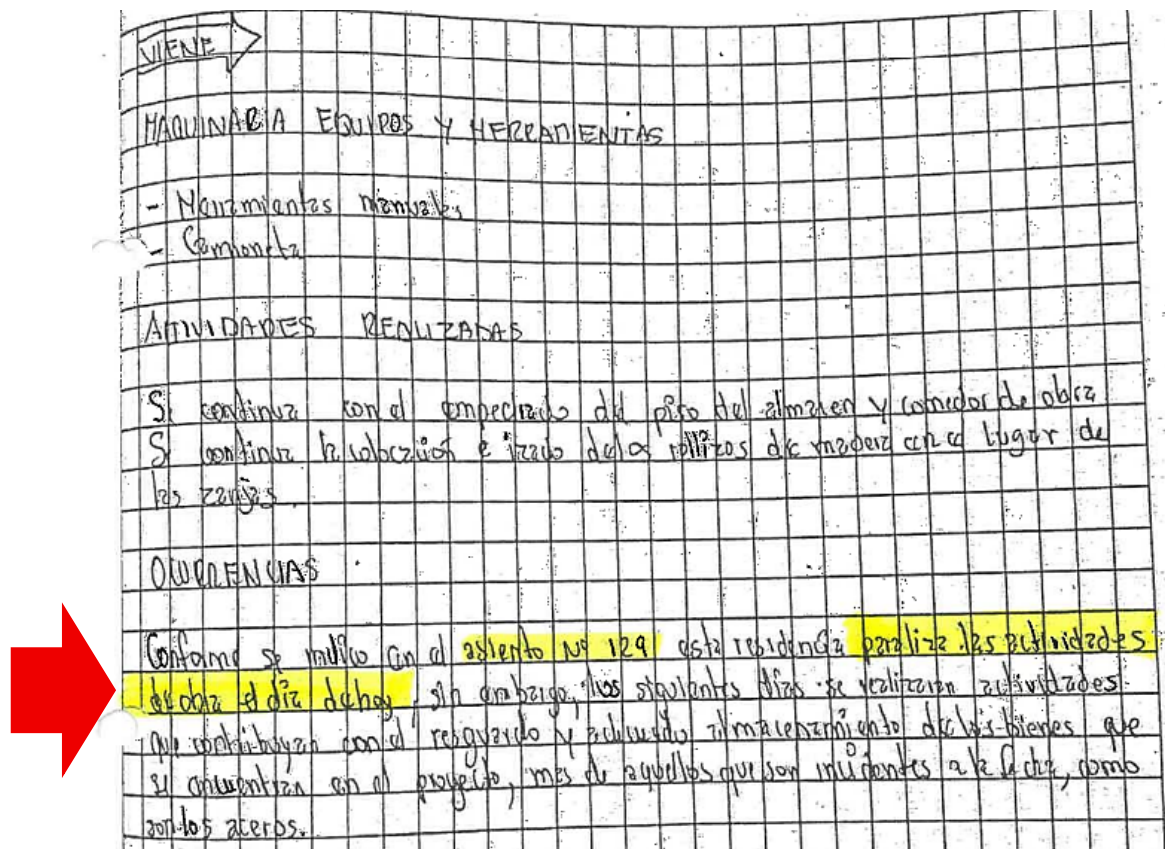 VIENE
MAQUINARIA EQUIPOS Y HERRAMIENTAS
- Herramientas manuales
- Camioneta
ACTIVIDADES REALIZADAS
Se continua con el empedrado del piso del almacen y comedor de obra
Se continua la colocación e izado de los rollizos de madera en el lugar de
las zanjas.
OCURRENCIAS
Conforme se indico en el asiento Nº 129 esta residencia paraliza las actividades
de obra el día de hoy, sin embargo, los siguientes días se realizaran actividades
que contribuyan con el resguardo y adecuado almacenamiento de los bienes que
se encuentran en el proyecto, mas de aquellos que son incidentes a la fecha, como
son los aceros.